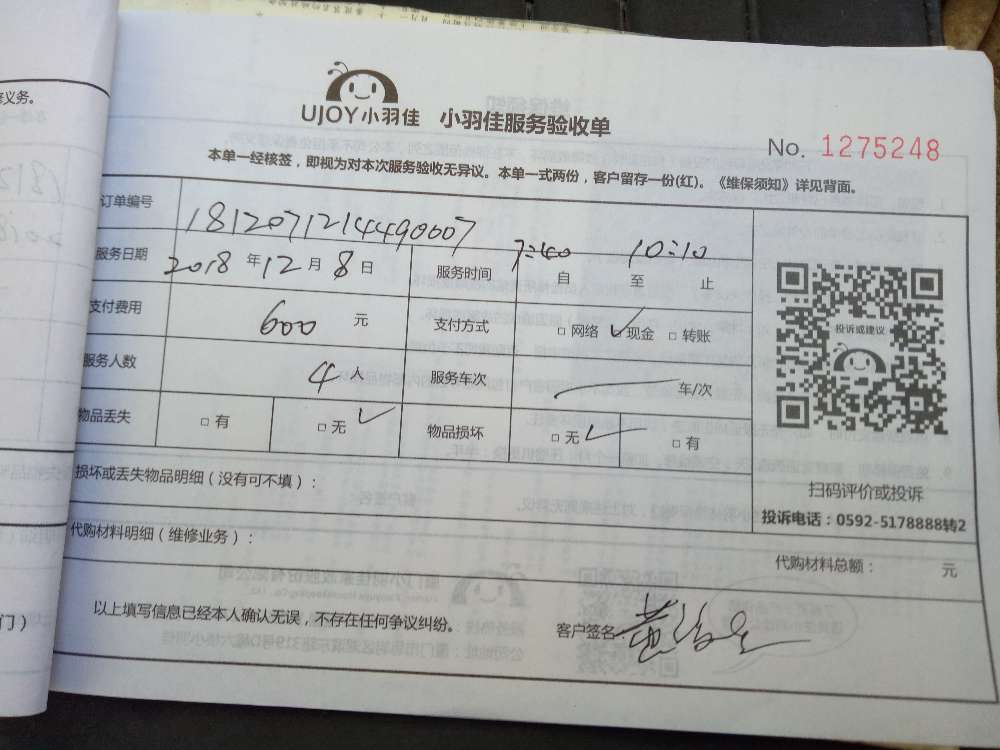 修义务。
UJOY小羽佳 小羽佳服务验收单
No. 1275248
本单一经核签，即视为对本次服务验收无异议。本单一式两份，客户留存一份(红)。《维保须知》详见背面。
订单编号 1812071214490007
服务日期 2018 年 12 月 8 日 服务时间 7:40 自 至 10:10 止
支付费用 600 元 支付方式 □ 网络 ✓ 现金 □ 转账
服务人数 4 人 服务车次 / 车/次
物品丢失 □ 有 □ 无 ✓ 物品损坏 □ 无 ✓ □ 有
投诉或建议
扫码评价或投诉
投诉电话：0592-5178888转2
损坏或丢失物品明细（没有可不填）：
代购材料明细（维修业务）：
代购材料总额： 元
以上填写信息已经本人确认无误，不存在任何争议纠纷。
客户签名
门）